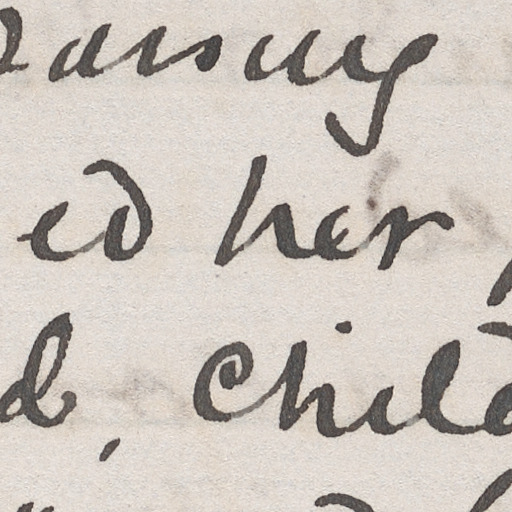 raising
ed her
d, Child